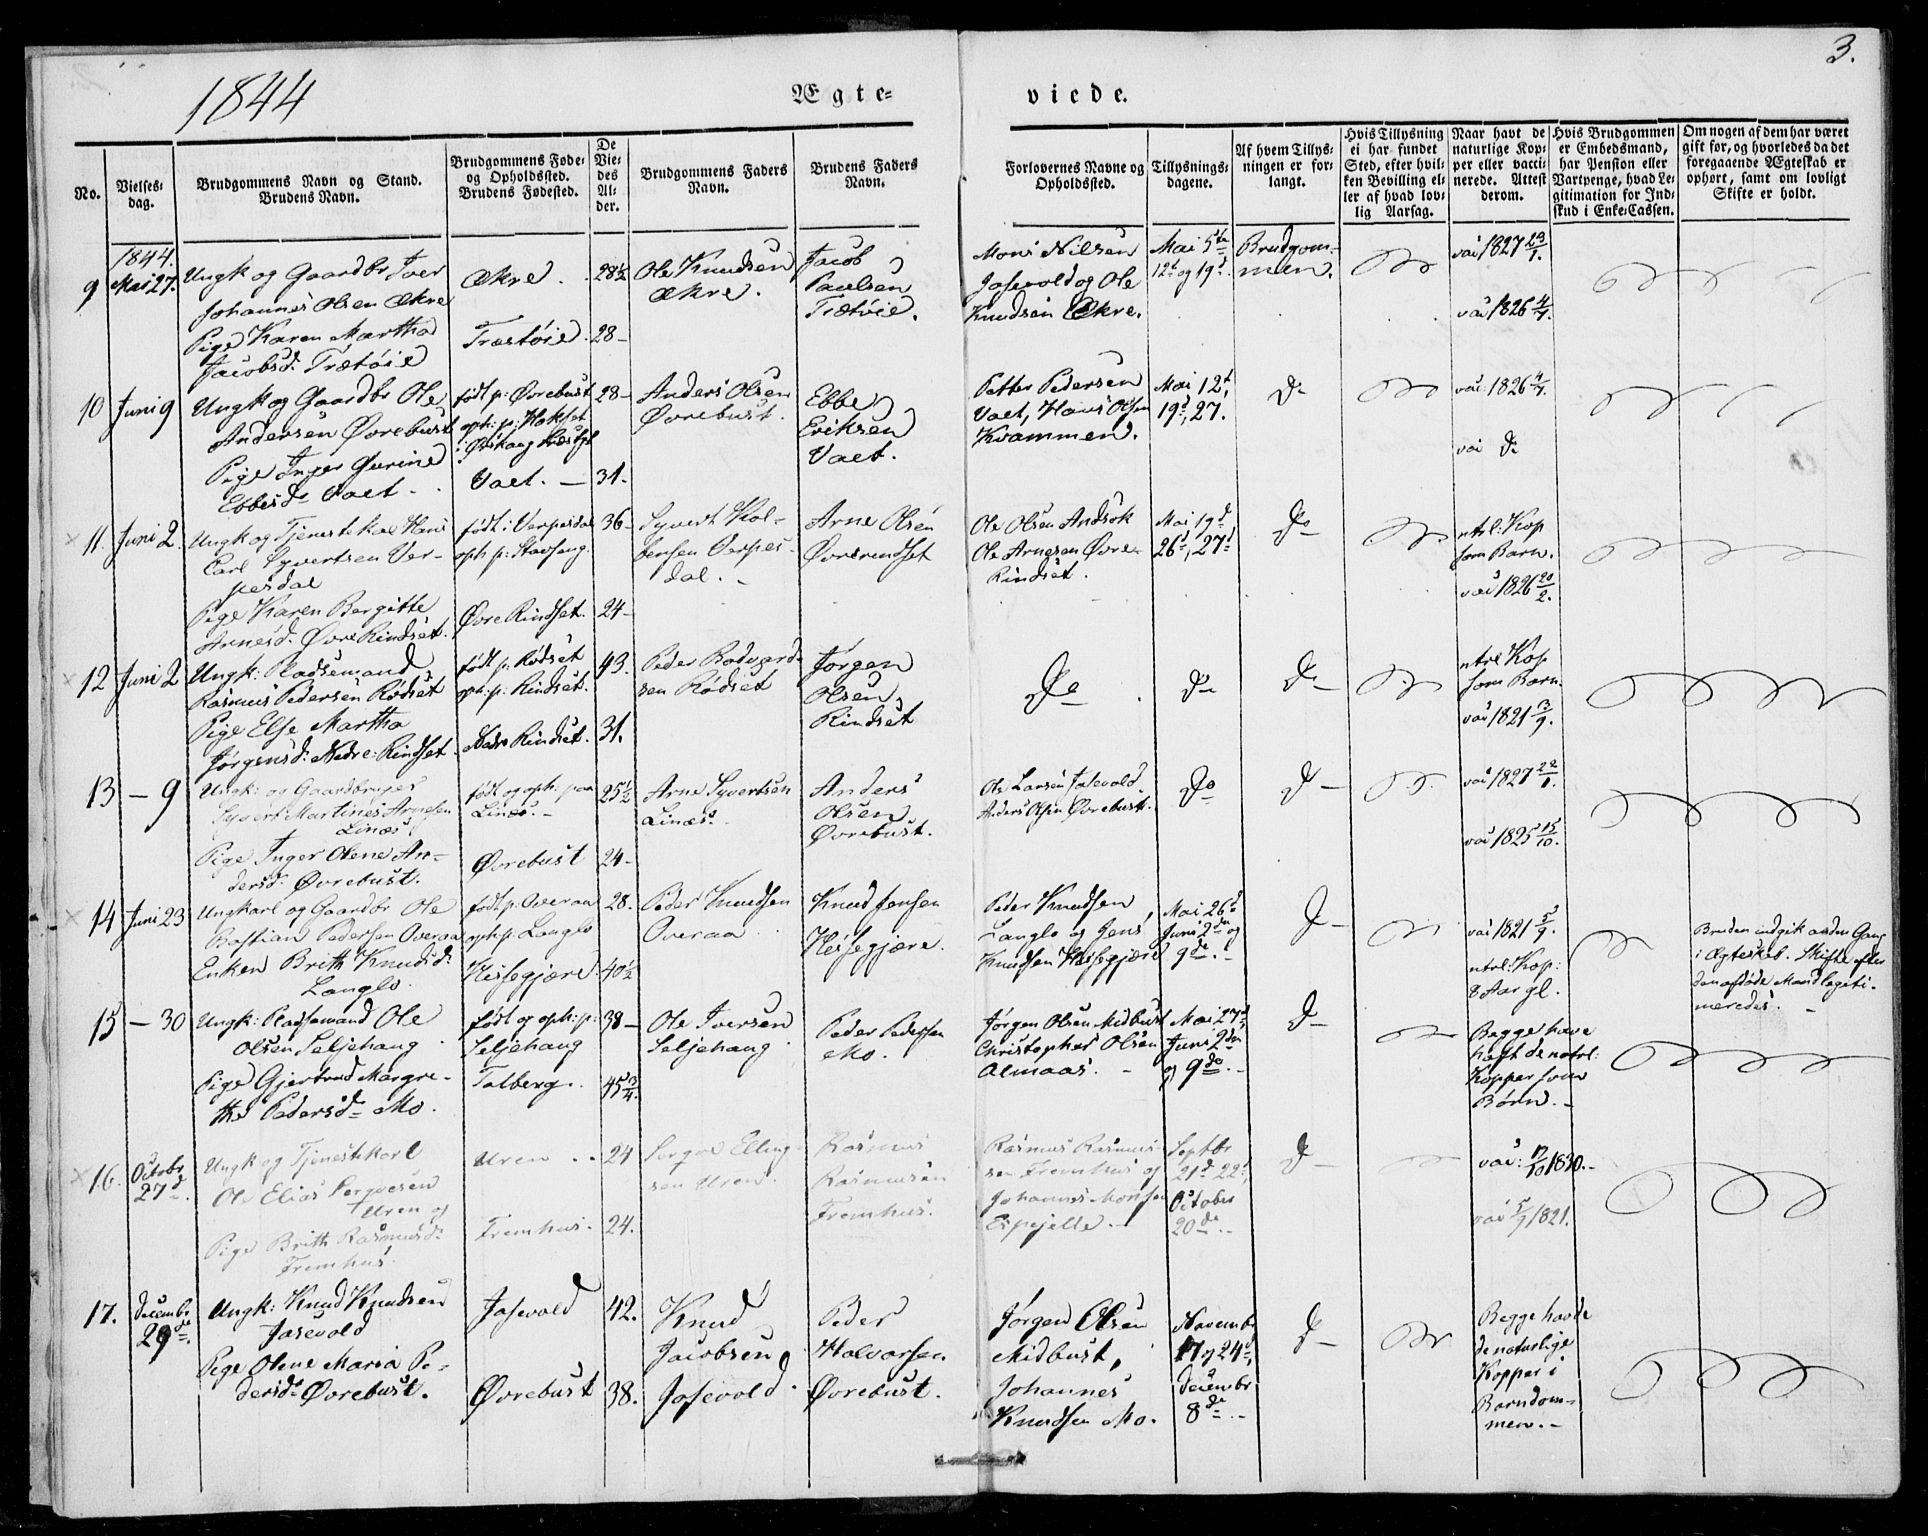 3.
1844
Ægte-
viede.
No.
Vielses-
dag.
Brudgommens Navn og Stand.
Brudens Navn.
Brudgommens Føde-
og Opholdssted.
Brudens Fødested.
De
Vie-
des
Al-
der.
Brudgommens Faders
Navn.
Brudens Faders
Navn.
Forlovernes Navne og
Opholdssted.
Tillysnings-
dagene.
Af hvem Tillys-
ningen er for-
langt.
Hvis Tillysning
ei har fundet
Sted, efter hvil-
ken Bevilling el-
ler af hvad lov-
lig Aarsag.
Naar havt de
naturlige Kop-
per eller vacci-
nerede. Attest
derom.
Hvis Brudgommen
er Embedsmand,
har Pension eller
Vartpenge, hvad Le-
gitimation for Ind-
skud i Enke-Cassen.
Om nogen af dem har været
gift før, og hvorledes da det
foregaaende Ægteskab er
ophørt, samt om lovligt
Skifte er holdt.
1844.
9
Mai 27.
Ungk og Gaardbr, Iver
Johannes Olsen Ækre
Pige Karen Martha
Jacobsd: Trætøie
Ækre.
Træstøie
28½
28-
Ole Knudsen
Ækre.
Jacob
Paulsen
Trætøie.
Mons Nilsen
Josevold og Ole
Knudsen Ækre.
Mai 5te
12t og 19d.
Brudgom-
men.
vac 1827 23/1.
vac 1826 4/7.
10
Juni 9
Ungk og Gaardbr Ole
Andersen Øvrebust
Pige Inger Gurine
Ebbesd- Vaet.
født p: Øvrebust
oph: p: Hakset
i Ørskoug Præstgl
Vaet. -
28-
31.
Anders Olsen
Øvrebust.
Ebbe
Eriksen
Vaet.
Petter Pedersen
Vaet, Hans Olsen
Kvammen.
Mai 12t,
19d, 27.
Do
vac: 1826 4/7.
vac do
11.
Juni 2.
Ungk og Tjenestekar Hans
Carl Syvertsen Ver-
pesdal
Pige Karen Bergitte
Arnesd. Øvre Rindset.
født i Verpesdal
oph p: Stavseng.
Øvre Rindset.
36-
24-
Syvert Kol-
bensen Verpes-
dal. -
Arne Olsen
Øvrerindset
Ole Olsen Andsok
Ole Arnesen Øvre
Rindset.
Mai 19de
26d, 27d
Do
ntrl. Kop
som Barn.
vac 1826 20/2.
12
Juni 2
Ungk: Pladsemand
Rasmus Pedersen Rødset
Pige Else Martha
Jørgensd: Nedre: Rindset.
født p: Rødset
oph: p: Rindset.
Nedre Rindset.
43.
31.
Peder Bodvard-
sen Rødset
Jørgen
Olsen
Rindset
Do
Do
Do
ntrl Kop
som Barn.
vac 1821 3/9.
13
- 9
Ungk: og Gaardbruger
Syvert Martinus Arnesen
Linæs
Pige Inger Olene An-
dersd. Øvrebust.
født og oph: paa
Linæs. -
Øvrebust
25½
24-
Arne Syvertsen
Linæs.
Anders
Olsen
Øvrebust.
Ole Larsen Josevold.
Anders Olsen Øvrebust.
Do
Do
vac 1827 22/1.
vac 1825 15/10.
14
Juni 23
Ungkarl og Gaardbr Ole
Bastian Pedersen Overaa
Enken Brith Knudsd:
Langlo.
født p: Overaa
oph p: Langlo
Hessegjære.
28.
40½
Peder Knudsen
Overaa
Knud Jensen
Hessegjære.
Peder Knudsen,
Langlo og Jens
Knudsen Hessegjære
Mai 26d
Juni 2den og
9de. -
Do
vac 1821 5/9.
ntrl: Kop:
8 Aar gl.
Bruden indgik anden Gang
i Ægteskab. Skifte efter
den afdøde Mand legiti-
meredes. -
15
- 30
Ungk: Pladsemand Ole
Olsen Seljehaug
Pige Gjertrud Margre-
the Pedersd- Mo.
født og oph: p:
Seljehaug
Talberg.
38-
45¾.
Ole Iversen
Seljehaug
Peder Pedersen
Mo.
Jørgen Olsen Midbust
Christopher Olsen
Almaas. -
Mai 27d,
Juni 2den
og 9de. -
Do
Begge have
havt de natrl:
Kopper som
Børn. -
16.
Octobr
27d.
Ungk og Tjenestekarl
Ole Elias Serquesen
Uren og
Pige Brith Rasmusd:
Fremhus.
Uren
Fremhus.
24
24.
Serque Elling-
sen Uren.
Rasmus
Rasmussen
Fremhus.
Rasmus Rasmus-
sen Fremhus og
Johannes Monsen
Espejelle. -
Septbr
21d 22d,
October
20de. -
Do
vac: 17/10 1830. -
vac 5/9 1821.
17.
Decembr
29de.
Ungk: Knud Knudsen
Josevold
Pige Olene Maria Pe-
dersd- Øvrebust.
Josevold
Øvrebust
42.
38.
Knud
Jacobsen
Josevold.
Peder
Halvorsen
Øvrebust.
Jørgen Olsen
Midbust,
Johannes
Knudsen Mo.
Novembr
17 og 24d,
Decembr
8de. -
Do
Begge havde
de naturlige
Kopper i
Barndom-
men. -